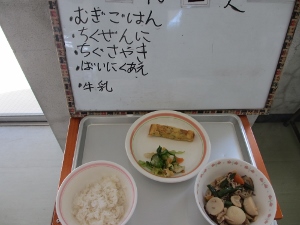 ・むぎごはん
・ちくぜんに
・ちぐさやき
・ばいにくあえ
・牛乳